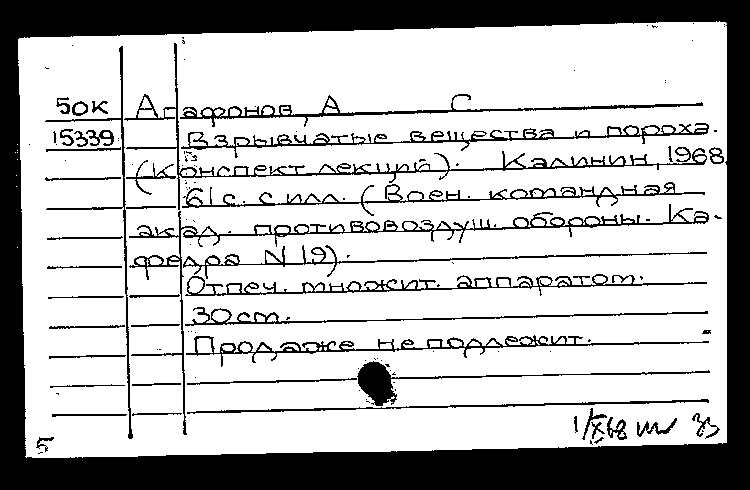 50К Агафонов, А С
15339 Взрывчатые вещества и пороха.
(Конспект лекций). Калинин, 1968
61 с. с илл. (Воен. командная
акад. противовоздуш. обороны. Ка-
федра N 19).
Отпеч. множит. аппаратом.
30 см.
Продаже не подлежит.
5 1/X68